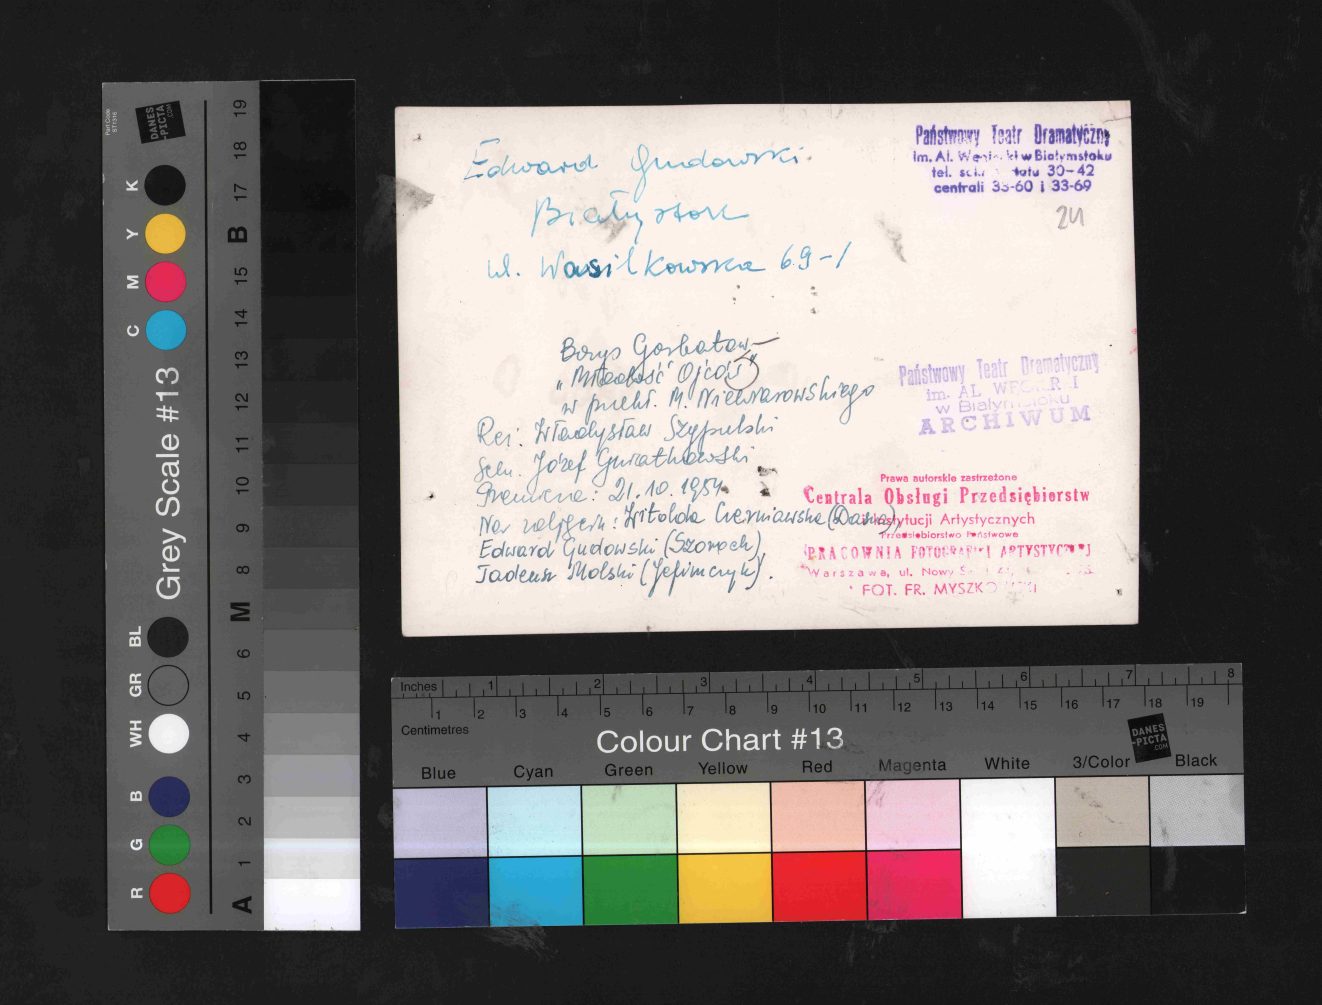 Edward Gudowski
Białystok
ul. Wasilkowska 69-1
Państwowy Teatr Dramatyczny
im. Al. Węgierki w Białymstoku
tel. 30-42
centrali 33-60 i 33-69
24
Borys Gorbatow -
„Młodość Ojców"
w przekł. M.
Reż: Władysław Szypulski
Scen. Józef
Premiera: 21.10.1954
Na zdjęciu: Witolda Czerniawska (Dasza),
Edward Gudowski (Szoroch),
Tadeusz Molski (Jefimczyk).
Państwowy Teatr Dramatyczny
im. AL WĘGIERKI
w Białymstoku
ARCHIWUM
Prawa autorskie zastrzeżone
Centrala Obsługi Przedsiębiorstw
i Instytucji Artystycznych
Przedsiębiorstwo Państwowe
PRACOWNIA FOTOGRAFII ARTYSTYCZNEJ
Warszawa, ul. Nowy
FOT. FR. MYSZKOWSKI
Part Code
ST1316
DANES
-PICTA
.COM
Grey Scale #13
K Y M C
BL GR WH
B G R
19 18 17 B 15 14 13 12 11 10 9 8 M 6 5 4 3 2 1 A
Inches 1 2 3 4 5 6 7 8
Centimetres 1 2 3 4 5 6 7 8 9 10 11 12 13 14 15 16 17 18 19
Colour Chart #13
DANES
-PICTA
.COM
Blue Cyan Green Yellow Red Magenta White 3/Color Black